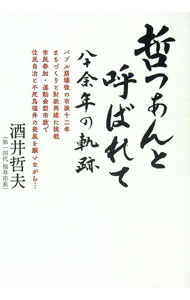 哲つあんと
呼ばれて
八十余年の軌跡
バブル崩壊後の市政十二年
まちづくりと財政再建に挑戦
市民参加・運動会型市政で
住民自治と不死鳥福井の発展を願いながら…
酒井哲夫
〔第一四代 福井市長〕